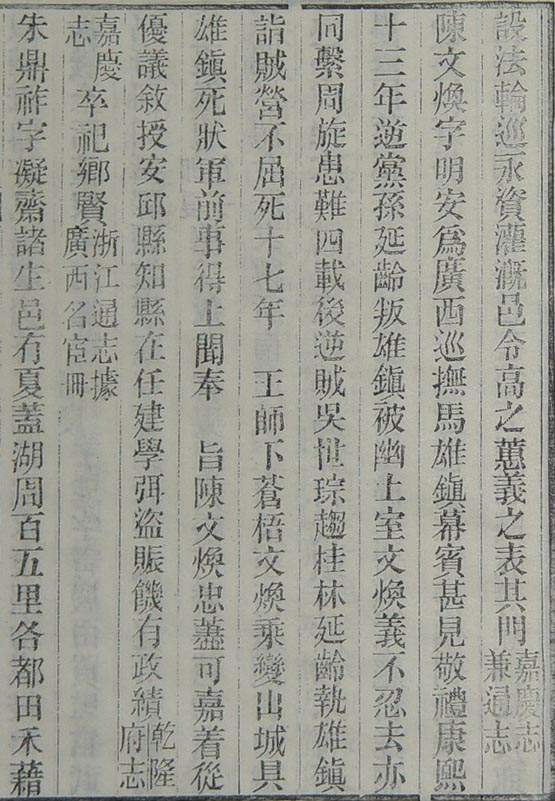 設法輪巡永資灌溉邑令高之蕙義之表其門嘉慶志兼通志
陳文煥字明安為廣西巡撫馬雄鎮幕賓甚見敬禮康熙
十三年逆黨孫延齡叛雄鎮被幽土室文煥義不忍去亦
同繫周旋患難四載後逆賊吳世琮趨桂林延齡執雄鎮
詣賊營不屈死十七年 王師下蒼梧文煥乘變出城具
雄鎮死狀軍前事得上聞奉 旨陳文煥忠藎可嘉着從
優議敘授安邱縣知縣在任建學弭盜賑饑有政績乾隆府志
嘉慶志 卒祀鄉賢浙江通志據廣西名宦冊
朱鼎祚字凝齋諸生邑有夏蓋湖周百五里各都田禾藉